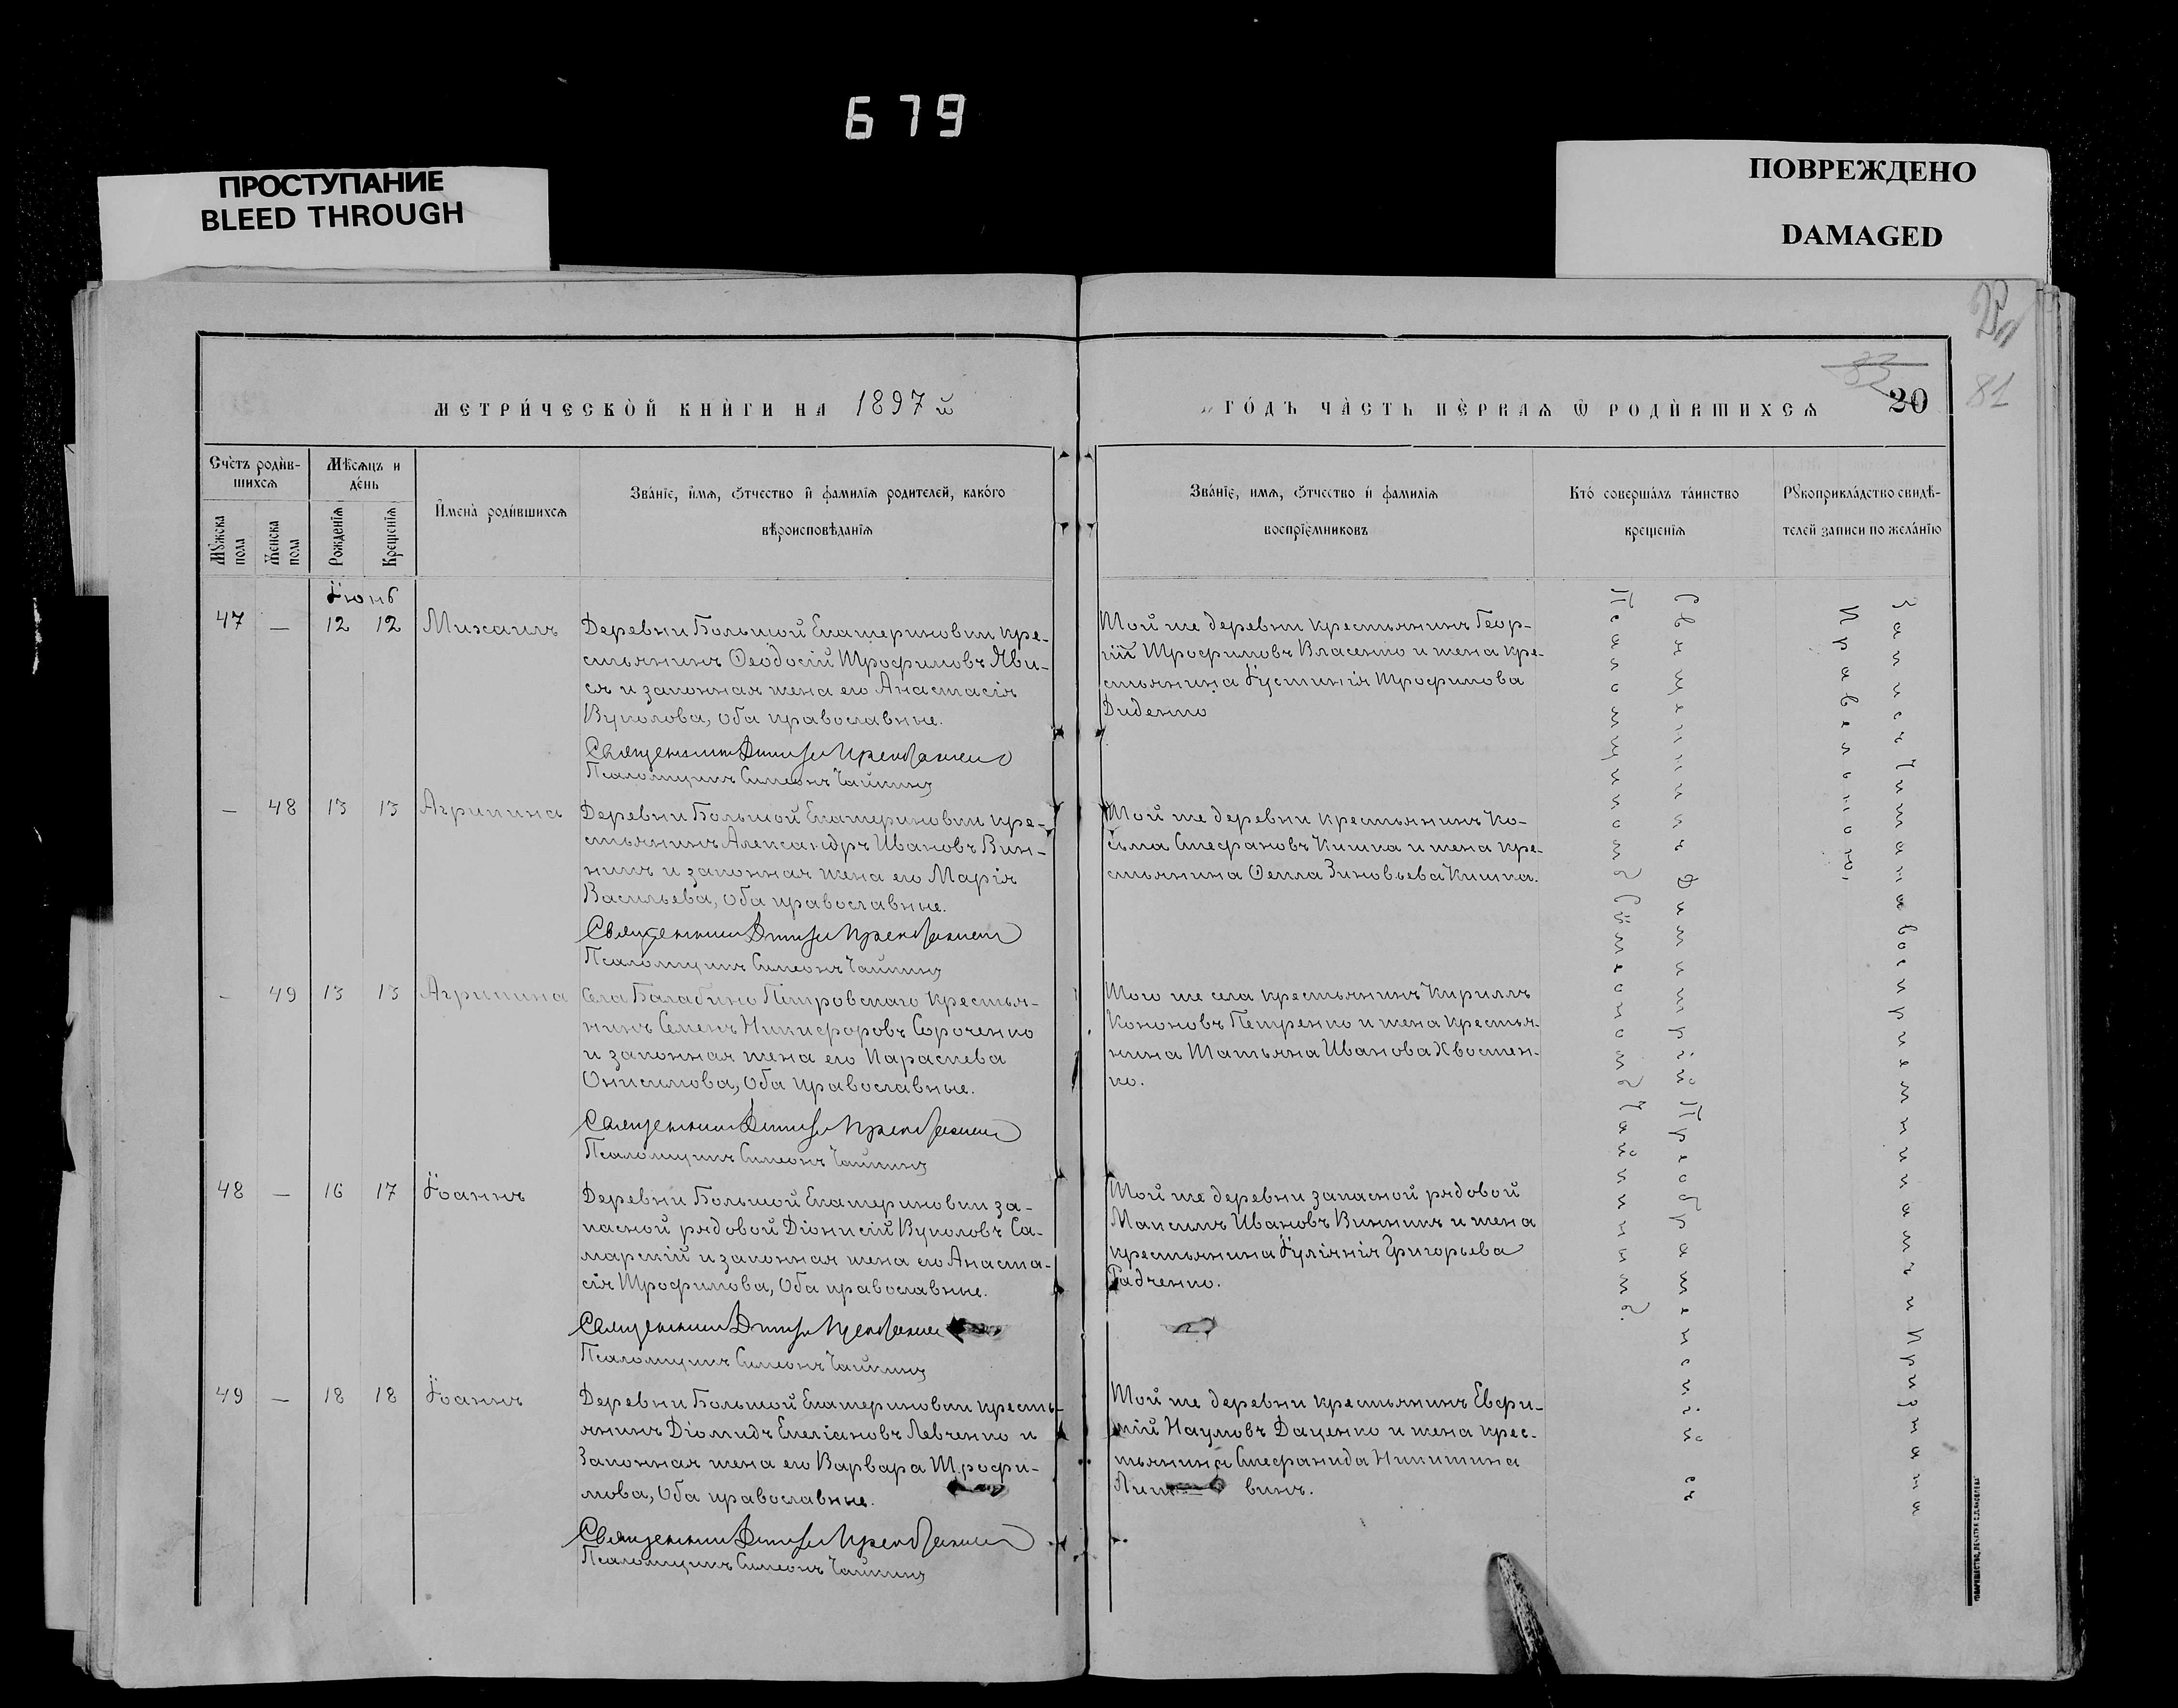 679
ПРОСТУПАНИЕ
BLEED THROUGH
ПОВРЕЖДЕНО
DAMAGED
83
20
81
МЕТРИ́ЧЕСКО̀Й КНЍГИ НА 1897 й
ГО́ДЪ ЧА̀СТЬ ПЀРВАѦ Ѿ РОДЍВШИХСѦ
Сче́тъ роди̂в-
шихсѧ
Мѣ́сѧцъ и
де́нь
Мꙋ́жска
пола
Же́нска
пола
Рожденїѧ
Крещенїѧ
И҆мена̀ роди́вшихсѧ
Зва́нїе, и҆́мѧ, ѻ҆́тчество и҆ фамилїѧ родителей, како́го
вѣроисповѣданїѧ
Зва́нїе, имѧ, ѻ҆́тчество и҆ фамилїѧ
воспрїемниковъ
Кто́ соверша́лъ та́инство
крещенїѧ
Рꙋкоприкла́дство свидѣ-
телей записи по жела́нїю
Іюнь
47 — 12 12 Михаилъ
Деревни Большой Екатериновки кре-
стьянинъ Ѳеодосій Трофимовъ Яви-
ся и законная жена его Анастасія
Вуколова, оба православные.
Священникъ Димитрій Преображенскій
Псаломщикъ Симеонъ Чайкинъ
Той же деревни крестьянинъ Геор-
гій Трофимовъ Власенко и жена кре-
стьянина Іустинія Трофимова
Диденко
— 48 13 13 Агрипина
Деревни Большой Екатериновки кре-
стьянинъ Александръ Ивановъ Вин-
никъ и законная жена его Марія
Васильева, оба православные.
Священникъ Димитрій Преображенскій
Псаломщикъ Симеонъ Чайкинъ
Той же деревни крестьянинъ Ко-
сьма Стефановъ Кишка и жена кре-
стьянина Ѳекла Зиновьева Кишка.
— 49 13 13 Агрипина
Села Балабино Петровскаго крестья-
нинъ Семенъ Никифоровъ Сороченко
и законная жена его Параскева
Онисимова, оба православные.
Священникъ Димитрій Преображенскій
Псаломщикъ Симеонъ Чайкинъ
Того же села крестьянинъ Кириллъ
Кононовъ Петренко и жена крестья-
нина Татьяна Иванова Хвостен-
ко.
48 — 16 17 Іоаннъ
Деревни Большой Екатериновки за-
пасной рядовой Діонисій Вуколовъ Са-
марскій и законная жена его Анаста-
сія Трофимова, Оба православные.
Священникъ Димитрій Преображенскій
Псаломщикъ Симеонъ Чайкинъ
Той же деревни запасной рядовой
Максимъ Ивановъ Винникъ и жена
крестьянина Іуліанія Григорьева
Радченко.
49 — 18 18 Іоаннъ
Деревни Большой Екатериновки кресть-
янинъ Діомидъ Емеліановъ Левченко и
Законная жена его Варвара Трофи-
мова, Оба православные.
Священникъ Димитрій Преображенскій
Псаломщикъ Симеонъ Чайкинъ
Той же деревни крестьянинъ Евфи-
мій Наумовъ Даценко и жена крес-
тьянина Стефанида Никитина
Лит винъ.
Священникъ Димитрій Преображенскій съ
Псаломщикомъ Симеономъ Чайкинымъ.
Запись Читана воспріемникамъ и Признана
Правельною.